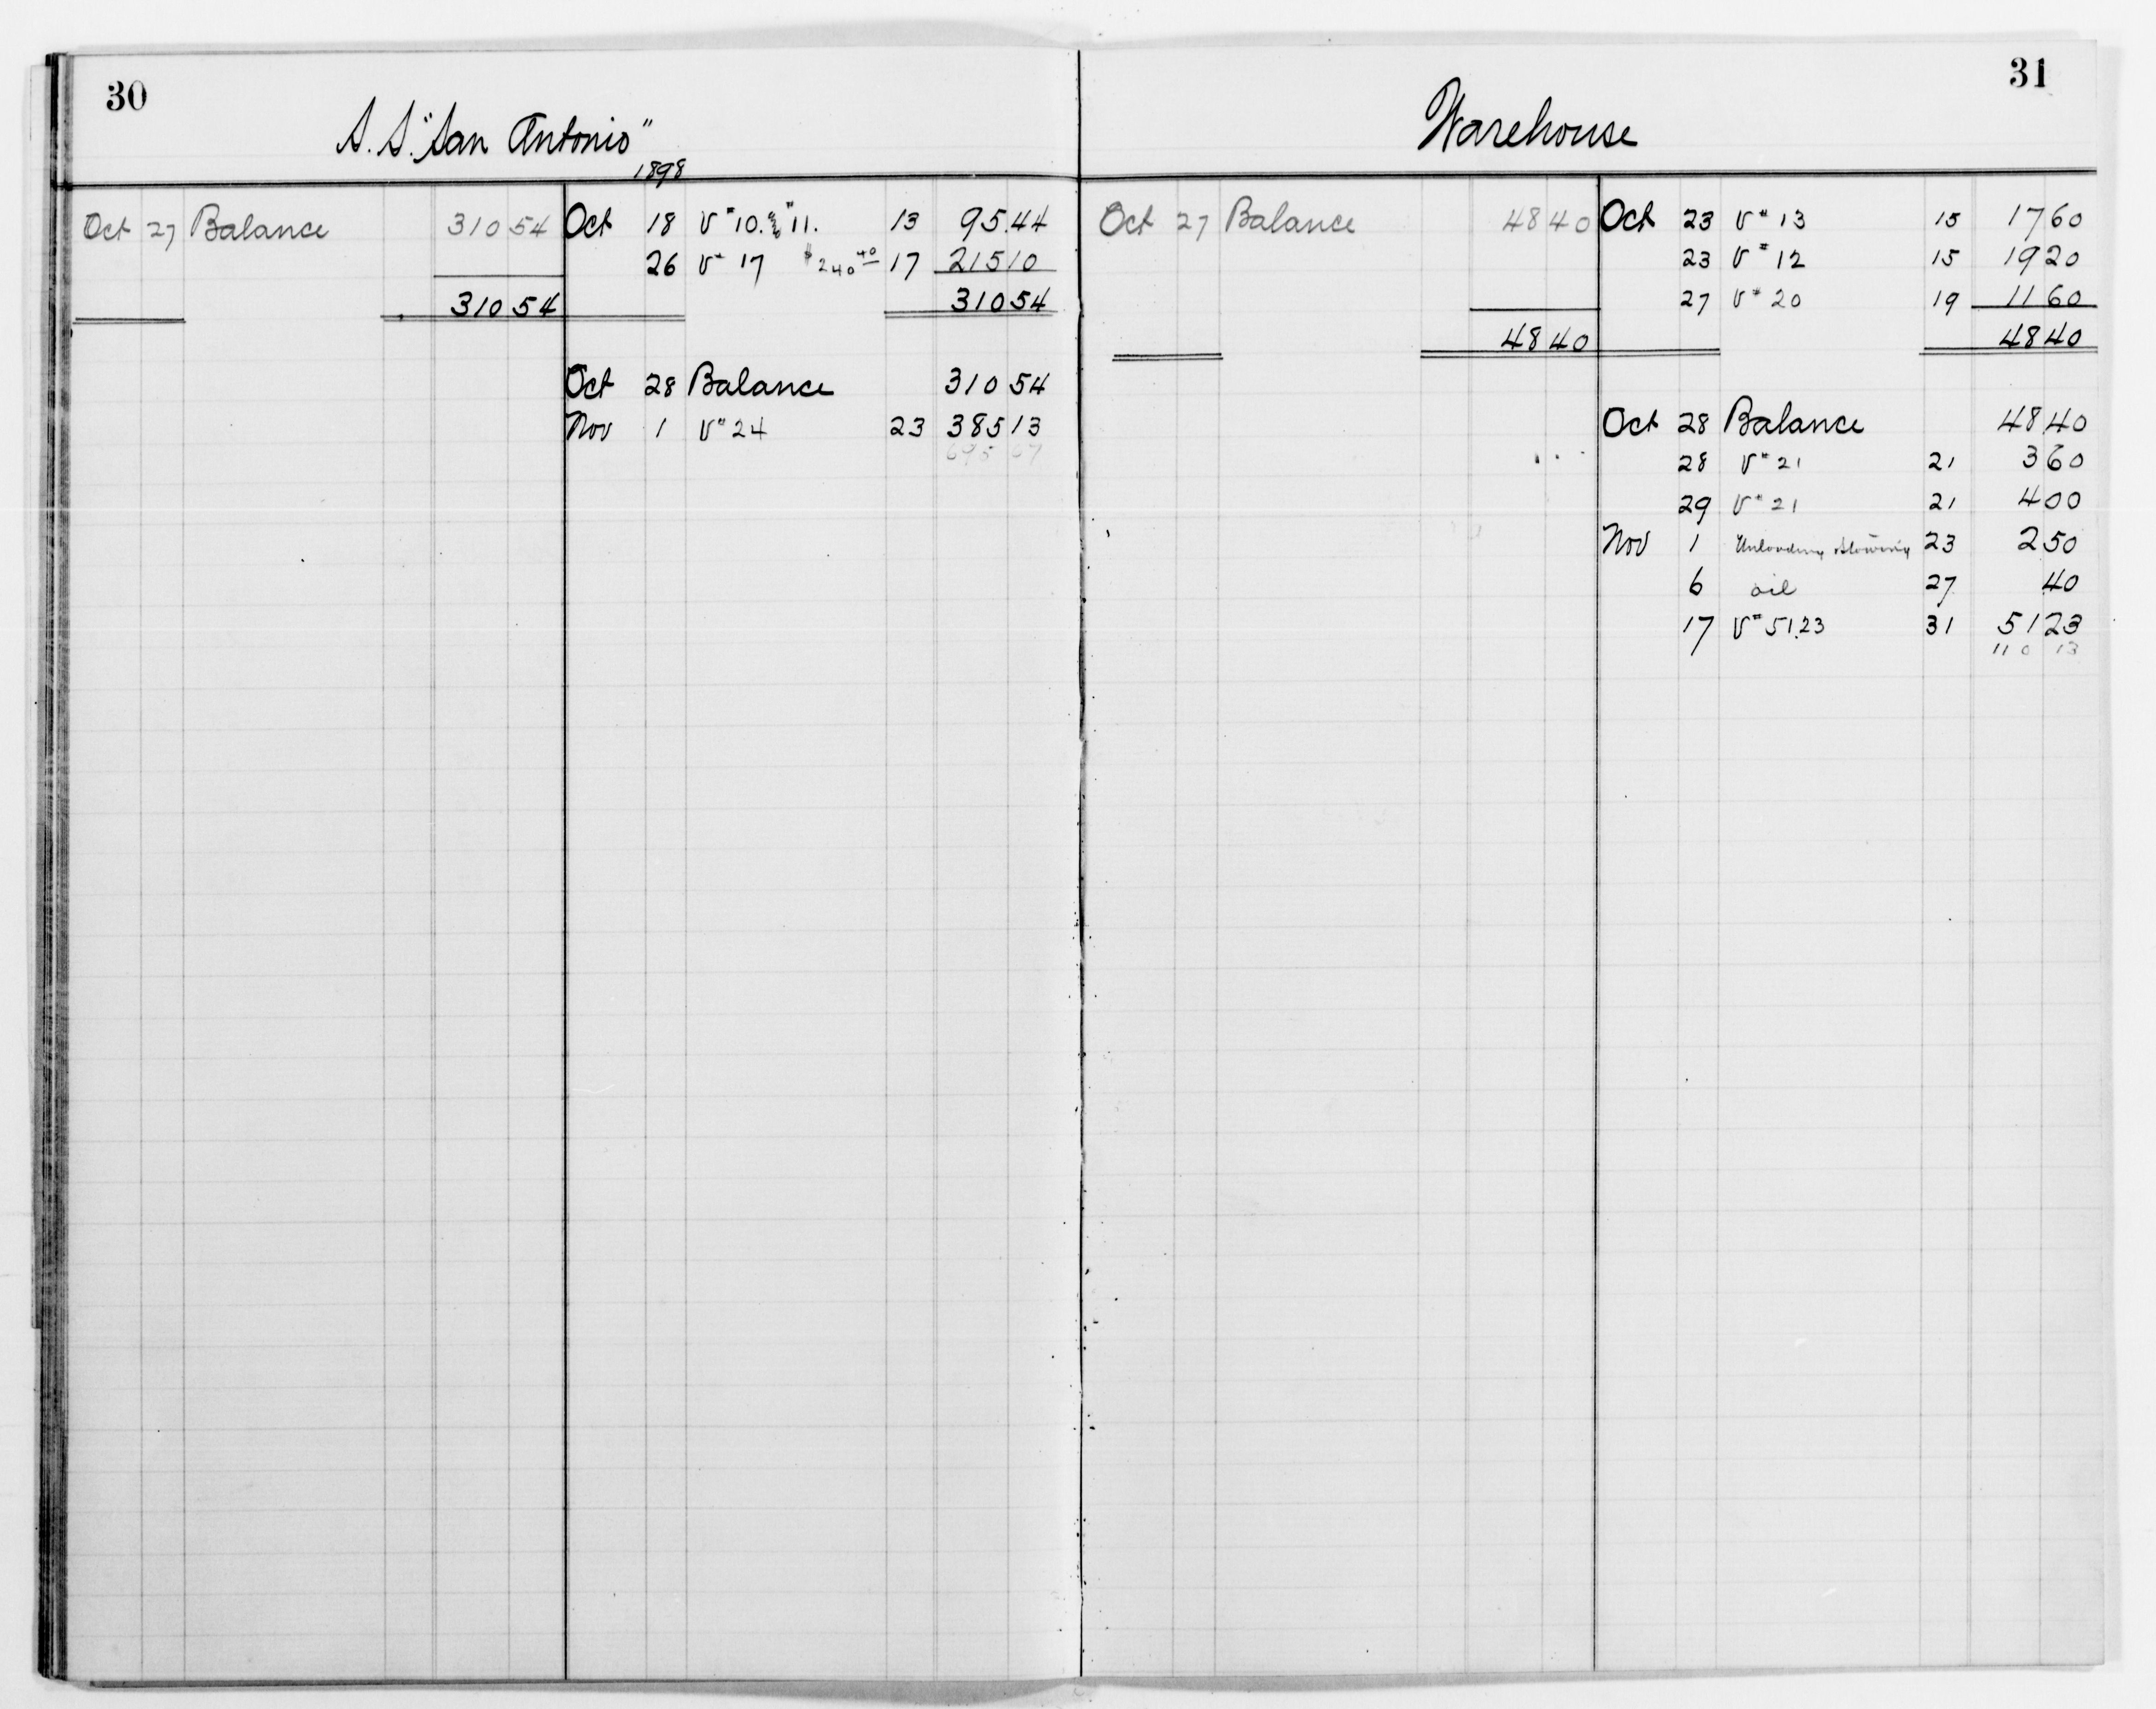 30
S. S. "San Antonio"
1898
Oct 27 Balance 310 54
310 54
Oct 18 V #10. & #11. 13 95.44
26 V# 17 $240 40 17 215 10
310 54
Oct 28 Balance 310 54
Nov 1 V# 24 23 385 13
695 67
31
Warehouse
Oct 27 Balance 48 40
48 40
Oct 23 V# 13 15 17 60
23 V# 12 15 19 20
27 V# 20 19 11 60
48 40
Oct 28 Balance 48 40
28 V# 21 21 3 60
29 V# 21 21 4 00
Nov 1 Unloading Stowing 23 2 50
6 oil 27 40
17 V# 51.23 31 51 23
110 13